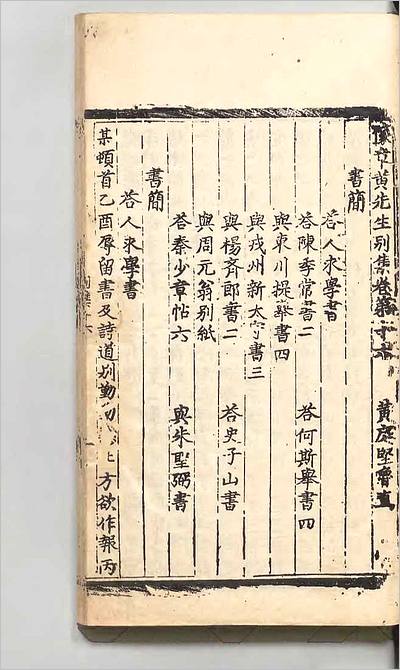 豫章黃先生別集卷第十六 黃庭堅魯直
書簡
荅人求學書
荅陳季常書二 荅何斯舉書四
與東川提舉書四
與戎州新太守書三
與楊齊郎書二 荅史子山書
與周元翁別紙
荅秦少章帖六 與朱聖弼書
書簡
荅人求學書
某頓首乙酉辱留書及詩道別勤 上方欲作報丙